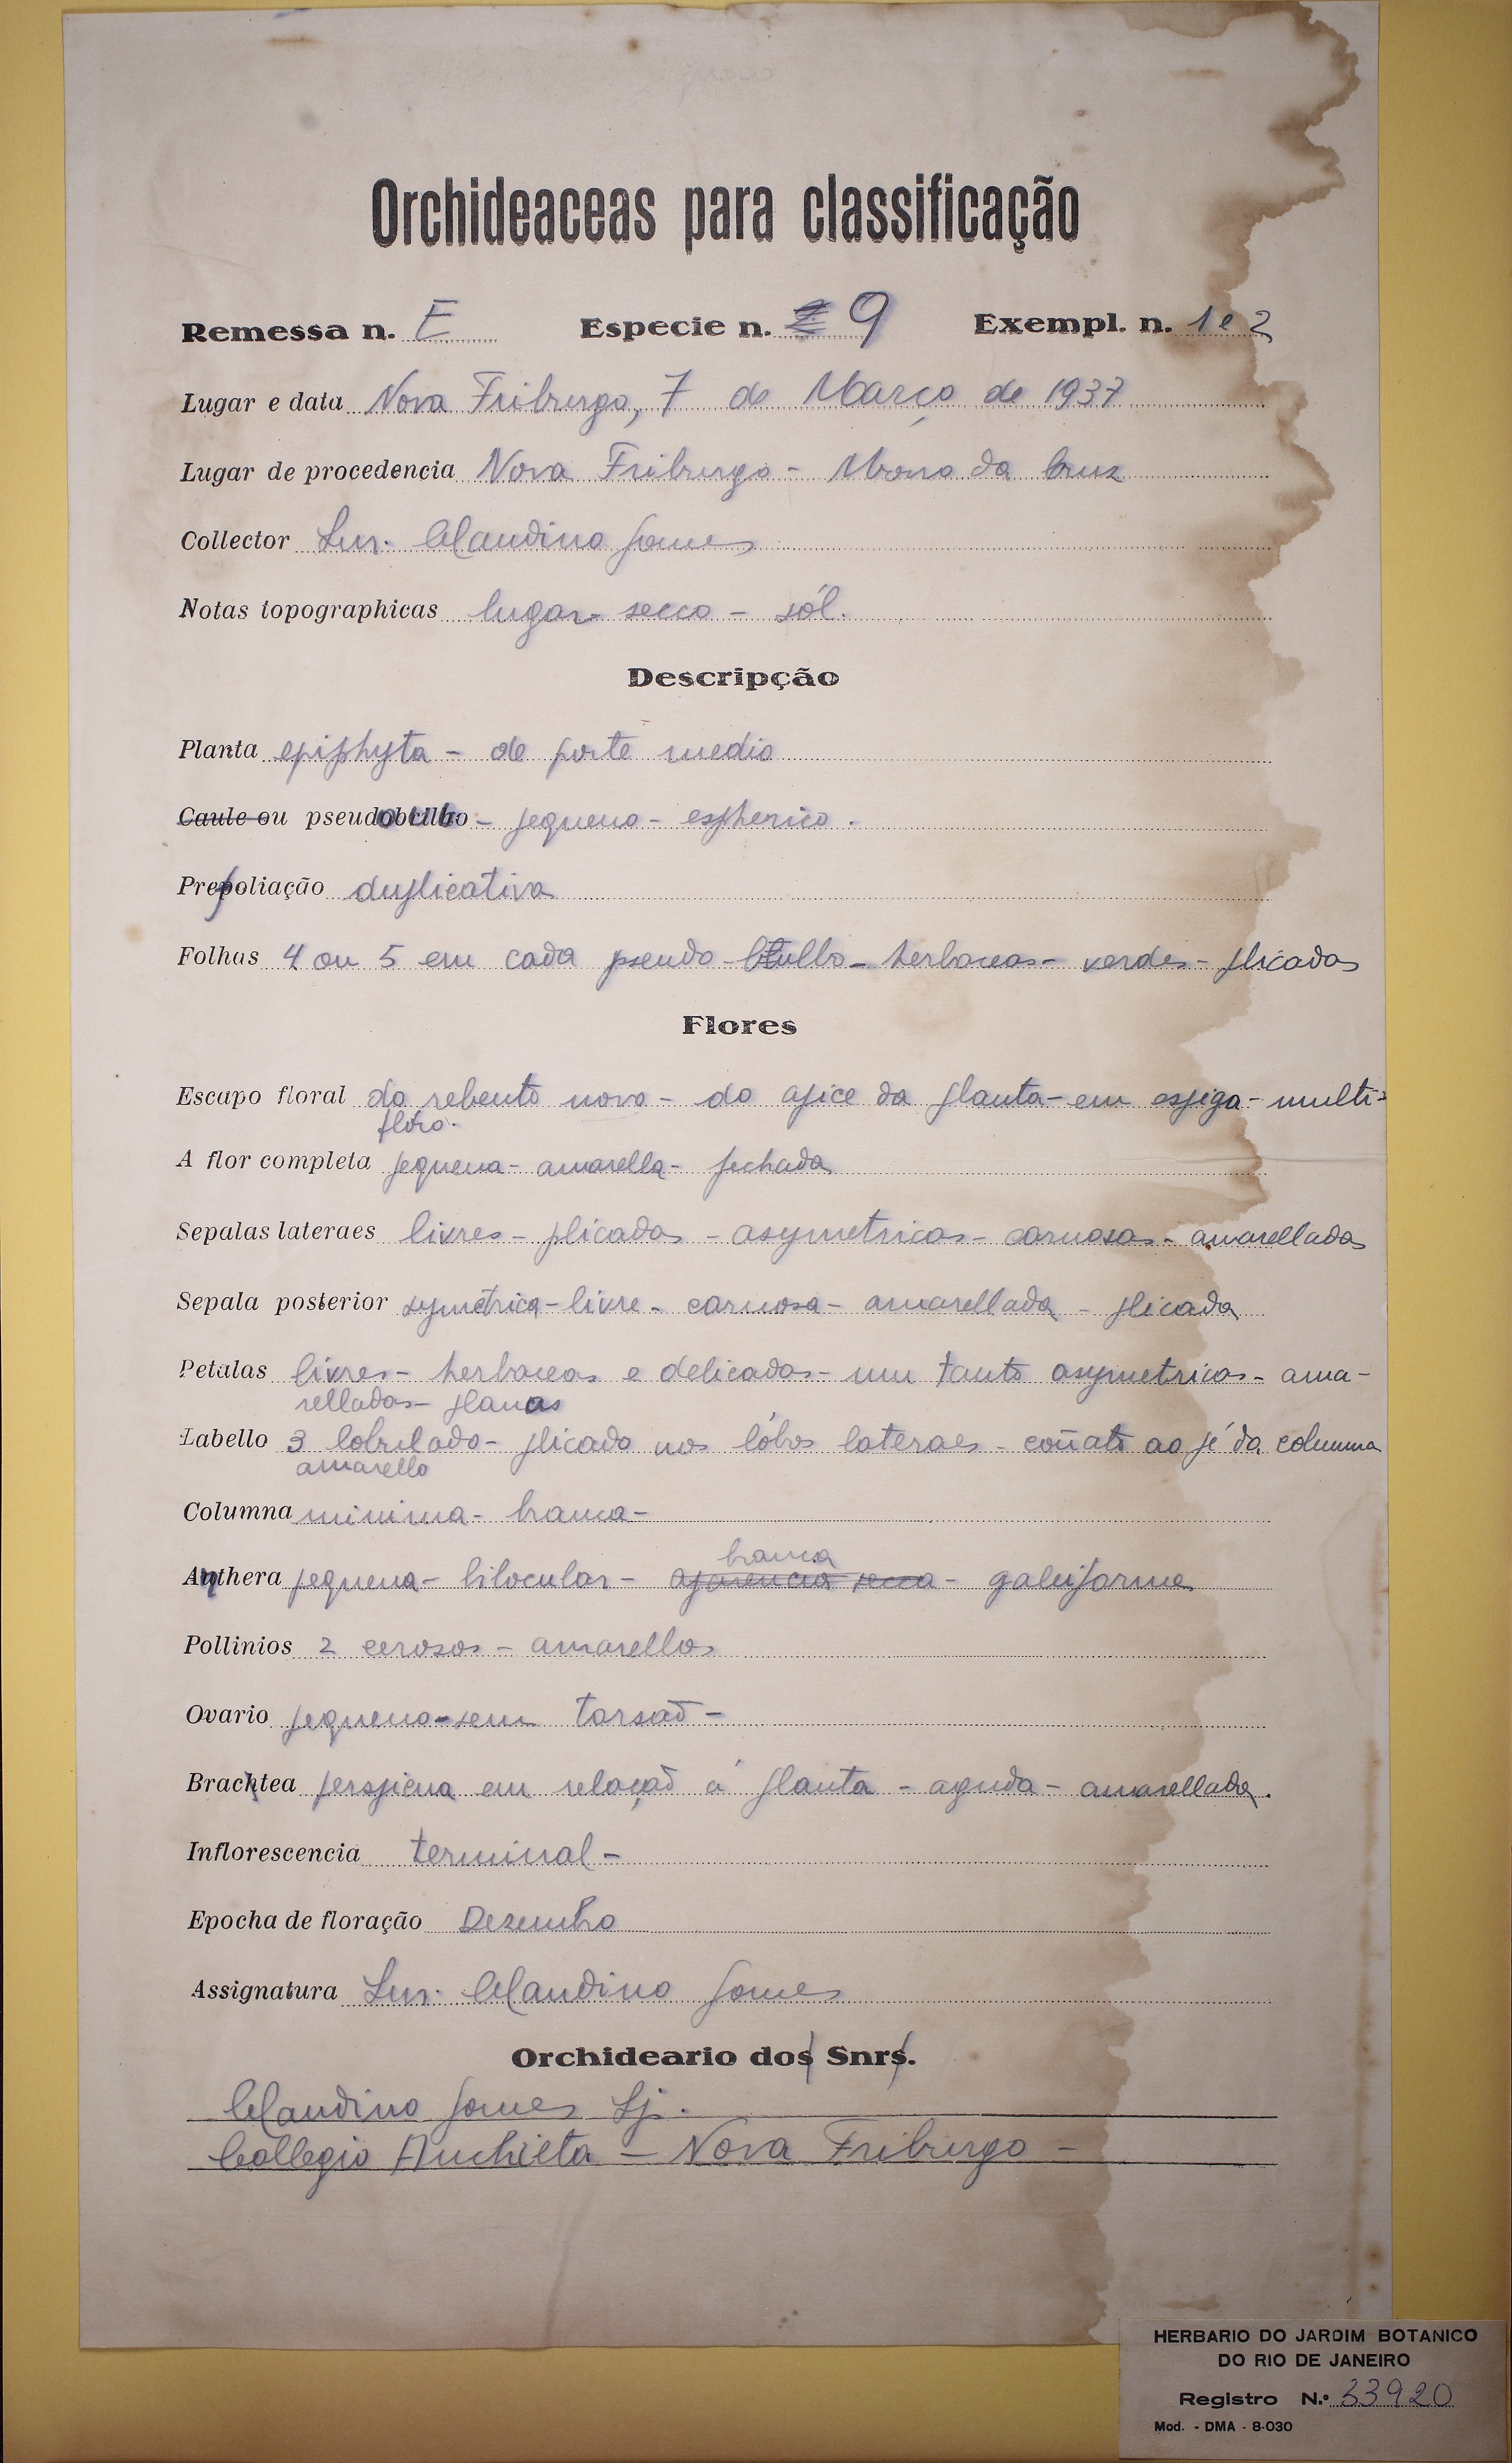 Orchideaceas para classificação
Remessa n. E Especie n. 9 Exempl. n. 1 e 2
Lugar e data Nova Friburgo, 7 de Março de 1937
Lugar de procedencia Nova Friburgo - Morro da Cruz
Collector Lur. Claudino Gomes
Notas topographicas lugar secco - sól.
Descripção
Planta epiphyta - de porte medio
Caule ou pseudobulbo - pequeno - espherico.
Prefoliação duplicativa
Folhas 4 ou 5 em cada pseudo-bulbo - herbaceas - verdes - plicadas
Flores
Escapo floral do rebento novo - do apice da planta - em espiga - multi-
floro.
A flor completa pequena - amarella - fechada
Sepalas lateraes livres - plicadas - asymetricas - carnosas - amarelladas
Sepala posterior symetrica - livre - carnosa - amarellada - plicada
Petalas livres - herbaceas e delicadas - um tanto asymetricas - ama-
relladas - planas
Labello 3 lobulado - plicado nos lóbos lateraes - coñato ao pé da columna
amarello
Columna minima - branca -
branca
Anthera pequena - bilocular - aparencia secca - galeiforme
Pollinios 2 cerosos - amarellos
Ovario pequeno - sem torsaõ -
Bractea perspicua em relaçaõ á planta - aguda - amarellada.
Inflorescencia terminal -
Epocha de floração Dezembro
Assignatura Lur. Claudino Gomes
Orchideario dos Snrs.
Claudino Gomes Sj.
Collegio Anchieta - Nova Friburgo -
HERBARIO DO JARDIM BOTANICO
DO RIO DE JANEIRO
Registro N.º 33920
Mod. - DMA - 8-030